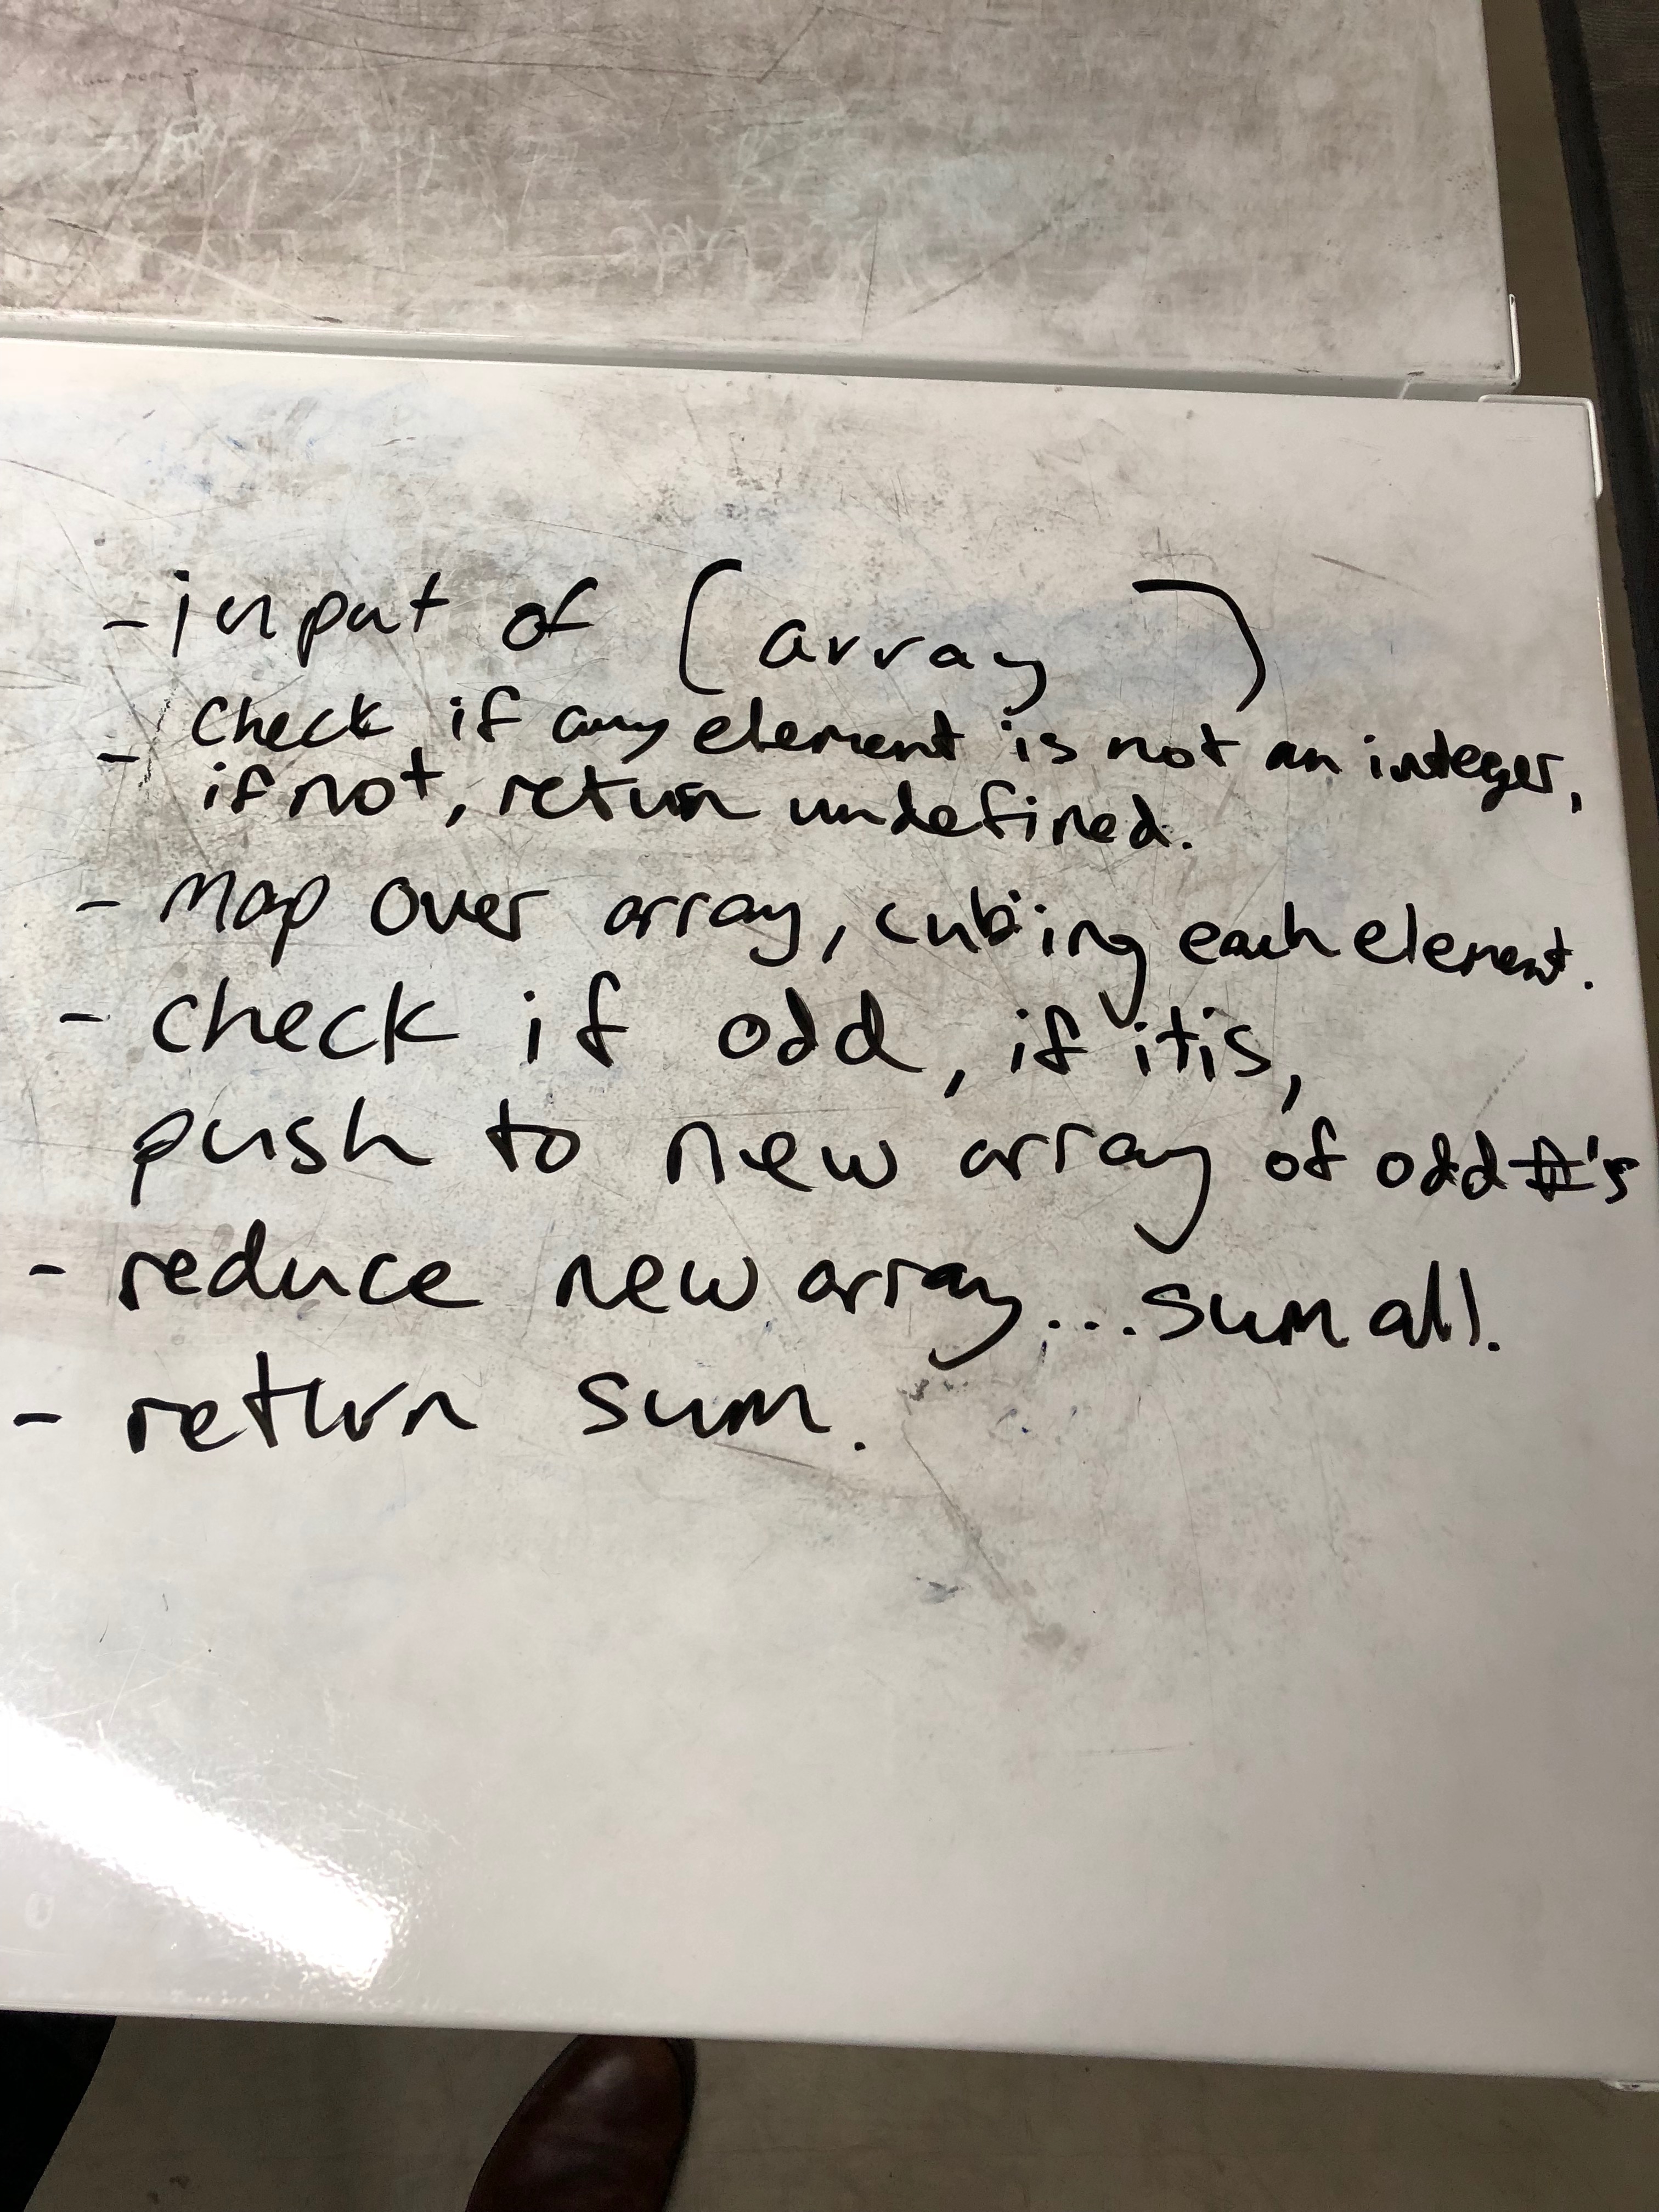 - input of (array )
- check if any element is not an integer,
if not, return undefined.
- Map over array, cubing each element.
- check if odd, if it is,
push to new array of odd #'s
- reduce new array... sum all.
- return sum.